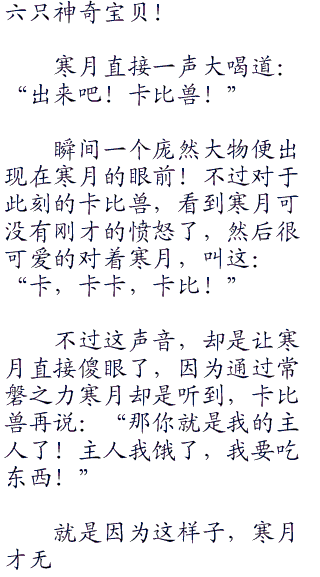 六只神奇宝贝！
寒月直接一声大喝道：
“出来吧！卡比兽！”
瞬间一个庞然大物便出
现在寒月的眼前！不过对于
此刻的卡比兽，看到寒月可
没有刚才的愤怒了，然后很
可爱的对着寒月，叫这：
“卡，卡卡，卡比！”
不过这声音，却是让寒
月直接傻眼了，因为通过常
磐之力寒月却是听到，卡比
兽再说：“那你就是我的主
人了！主人我饿了，我要吃
东西！”
就是因为这样子，寒月
才无